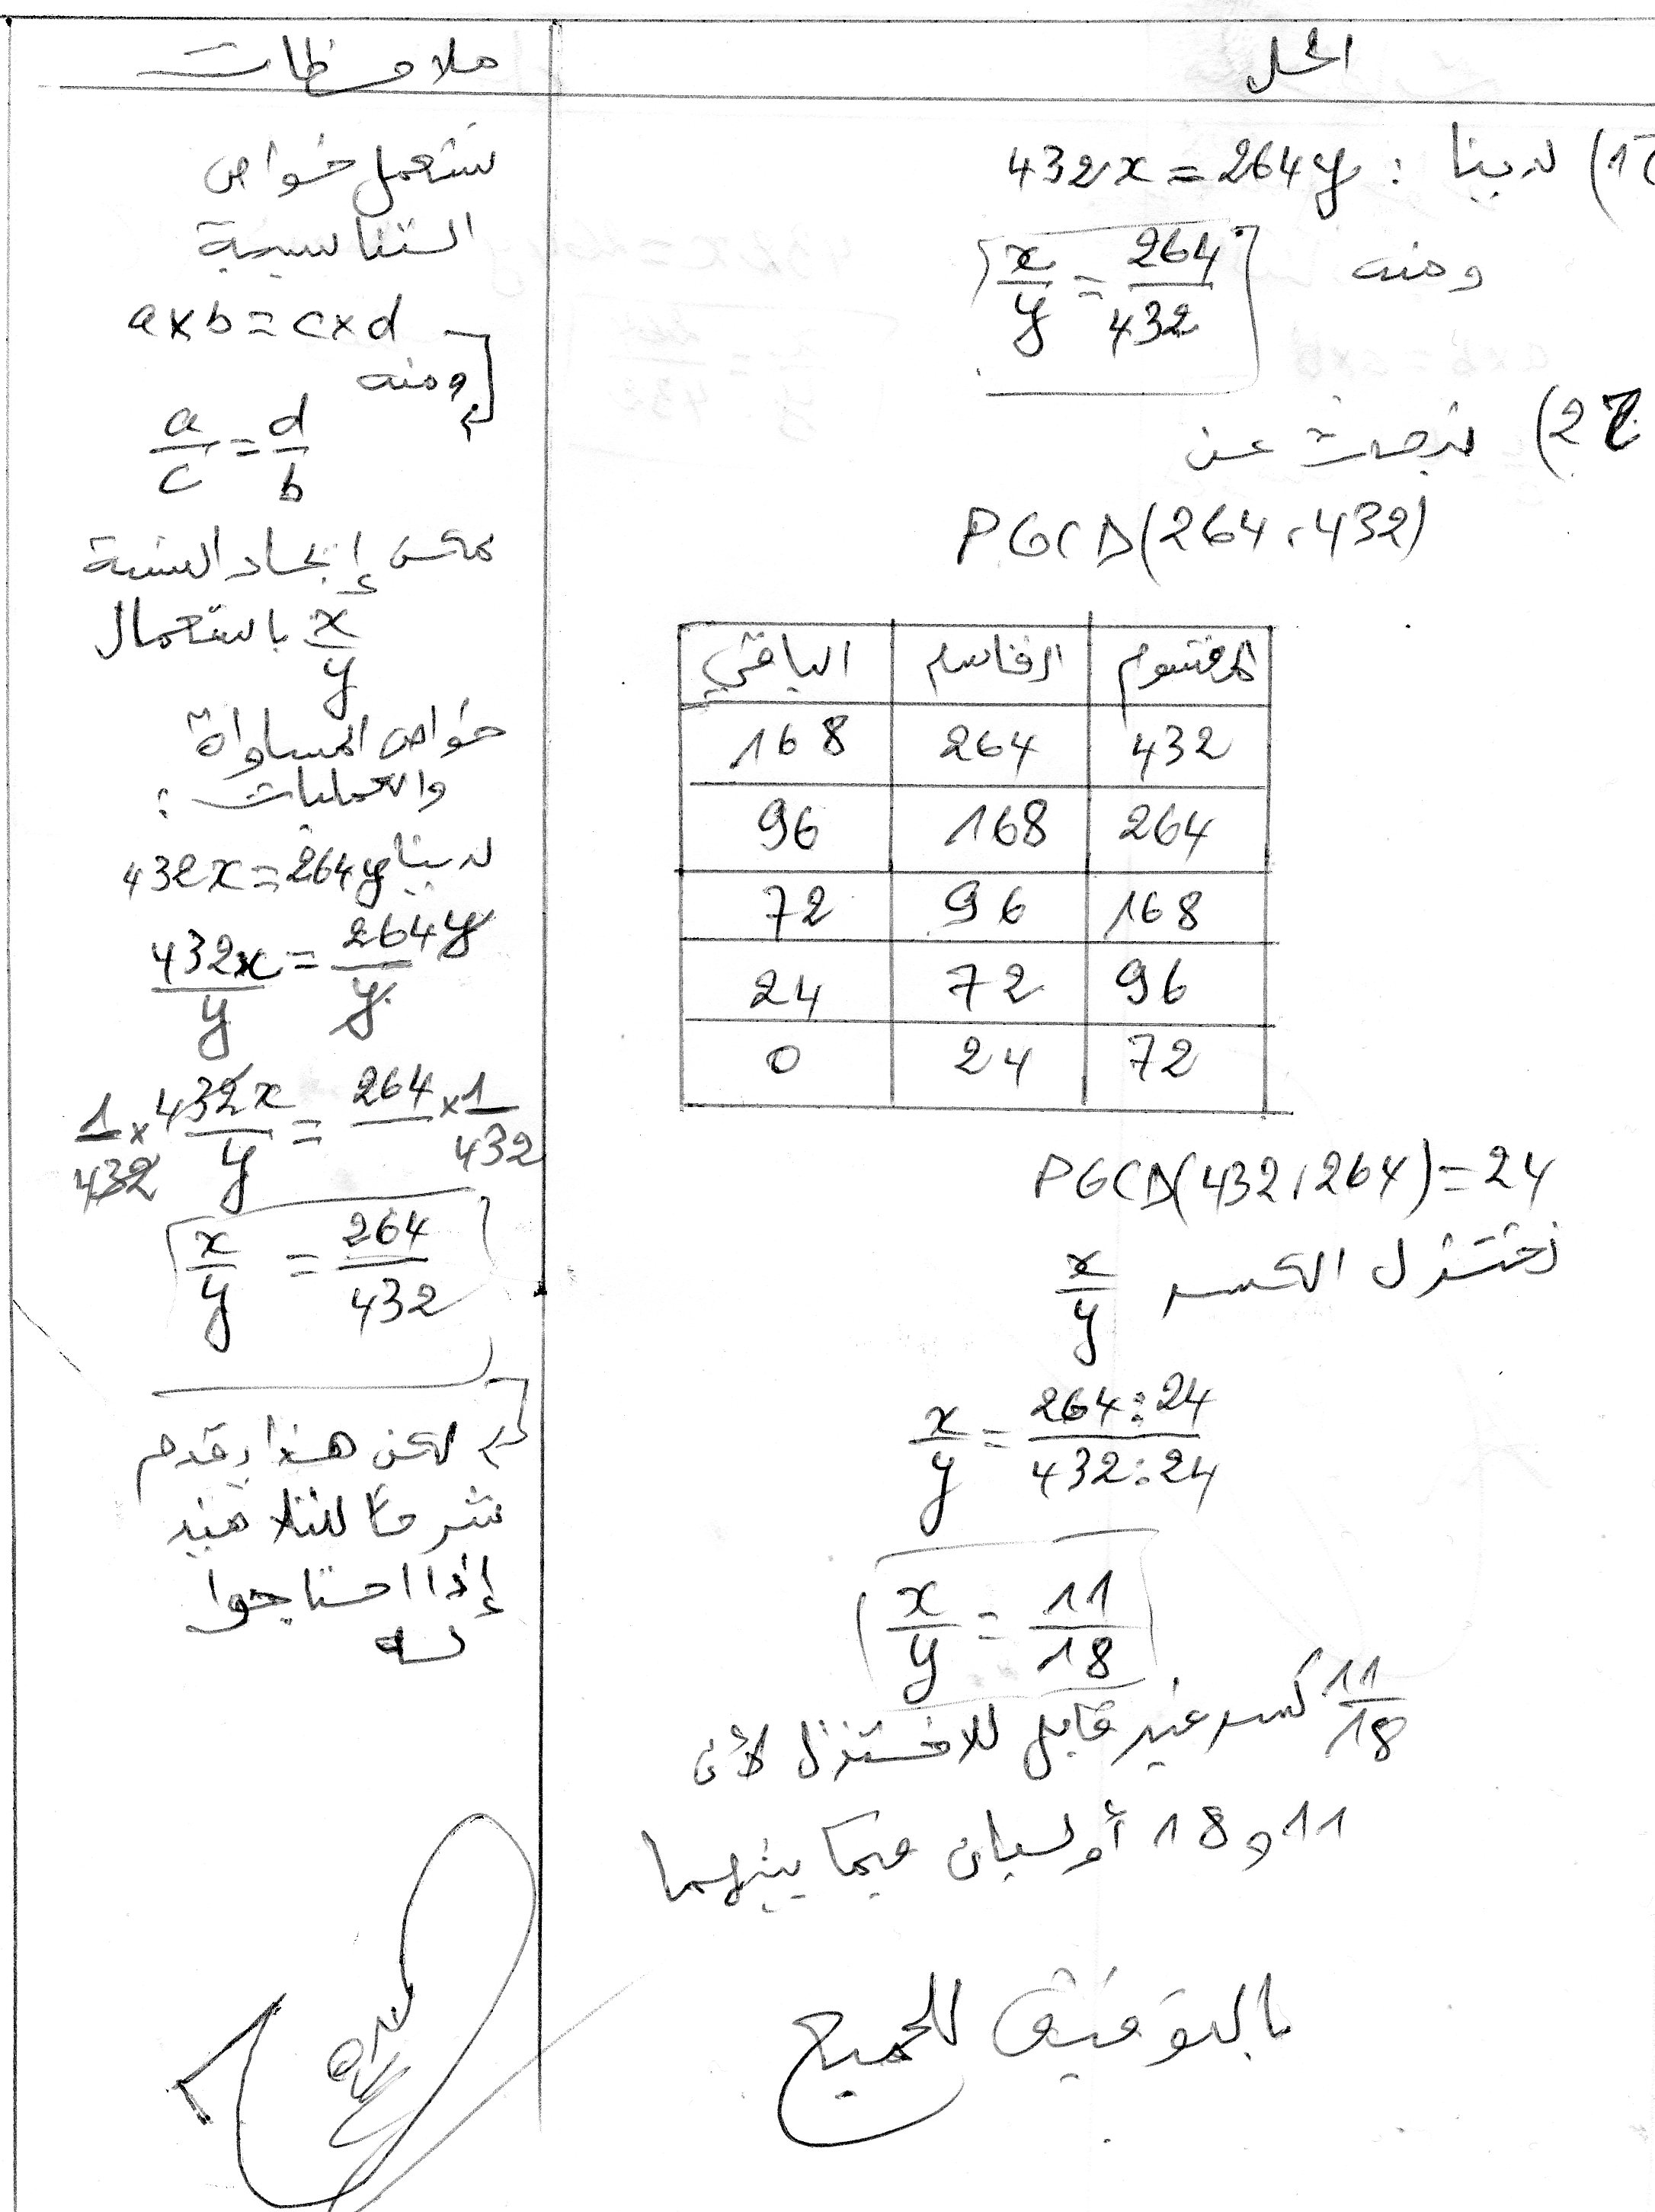 الحل
1) لدينا : 432x = 264y
ومنه x/y = 264/432
2) نبحث عن
PGCD(264, 432)
المقسوم القاسم الباقي
432 264 168
264 168 96
168 96 72
96 72 24
72 24 0
PGCD(432, 264) = 24
نختزل الكسر x/y
x/y = 264:24/432:24
x/y = 11/18
11/18 كسر غير قابل للاختزل لأن
11 و 18 أوليان فيما بينهما
بالتوفيق للجميع
ملاحظات
نستعمل خواص
التناسبية
a×b = c×d
ومنه
a/c = d/b
يمكن إيجاد النسبة
x/y باستعمال
خواص المساواة
والعمليات :
لدينا 432x = 264y
432x/y = 264y/y
1/432 × 432x/y = 264 × 1/432
x/y = 264/432
لكن هذا يقدم
شرحا للتلاميذ
إذا احتاجوا
له